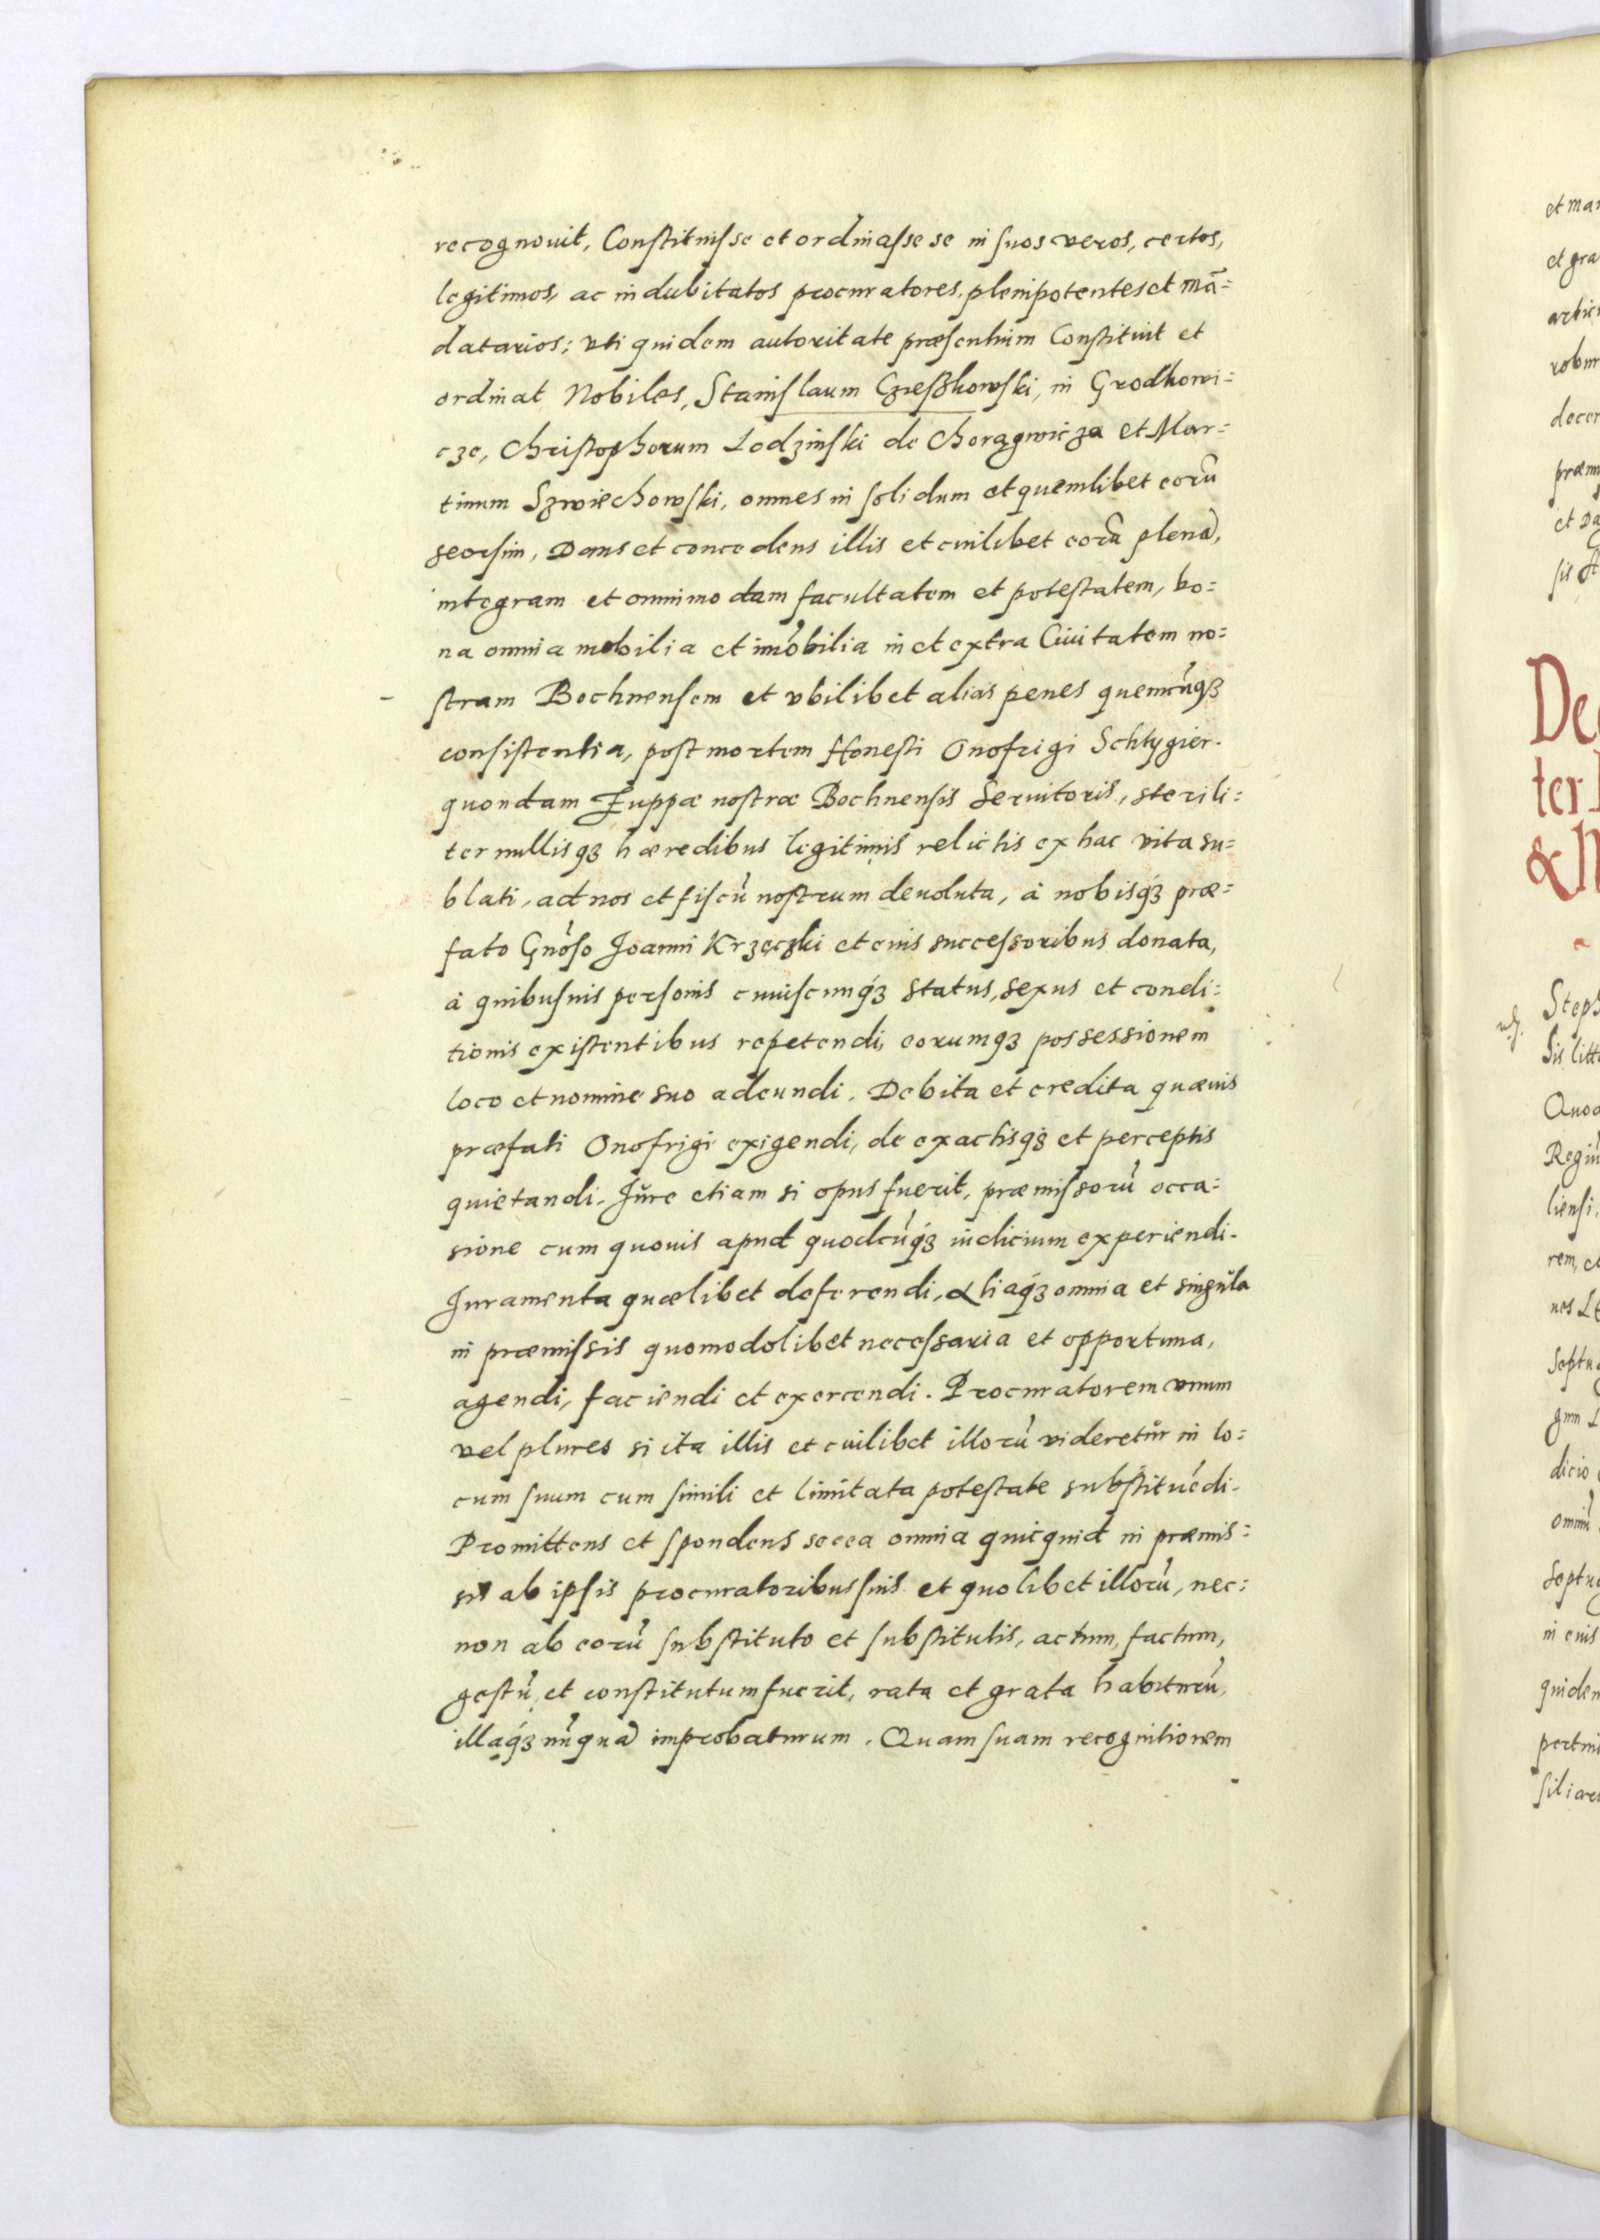 recognouit, Constituisse et ordinasse se in suos veros, certos,
legitimos, ac indubitatos procuratores, plenipotentes et mā=
datarios; vti quidem autoritate præsentium Constituit et
ordinat Nobiles, Stanislaum Czeszkowski, in Grodkowi=
cze, Christophorum Lodzinski de Chorągwicza et Mar=
tinum Szwiechowski, omnes in solidum et quemlibet eorū
seorsim, Dans et concedens illis et cuilibet eorū plenā,
integram et omnimodam facultatem et potestatem, bo=
na omnia mobilia et imōbilia in et extra Ciuitatem no=
stram Bochnensem et vbilibet alias penes quemcūqꝫ
consistentia, post mortem Honesti Onofrigi Schtygier.
quondam Zuppæ nostræ Bochnensis Seruitoris, sterili=
ter nullisqꝫ hæredibus legitimis relictis ex hac vita su=
blati, ad nos et fiscū nostrum deuoluta, à nobisqꝫ præ=
fato Gnōso Joanni Krzęczki et eius successoribus donata,
à quibusuis personis cuiuscunqꝫ status, sexus et condi=
tionis existentibus repetendi, eorumqꝫ possessionem
loco et nomine suo adeundi. Debita et credita quæuis
præfati Onofrigi exigendi, de exactisqꝫ et perceptis
quietandi. Jure etiam si opus fuerit, præmissorū occa=
sione cum quouis apud quodcūqꝫ iudicium experiendi.
Juramenta quælibet deferendi, Aliaqꝫ omnia et singula
in præmissis quomodolibet necessaria et opportuna,
agendi, faciendi et exercendi. Procuratorem vnum
vel plures si ita illis et cuilibet illorū videretur in lo=
cum suum cum simili et limitata potestate substituēdi.
Promittens et spondens se ea omnia quicquid in præmis=
sis ab ipsis procuratoribus suis et quolibet illorū, nec=
non ab eorū substituto et substitutis, actum, factum,
gestū, et constitutum fuerit, rata et grata habiturū,
illaqꝫ nūquā improbaturum. Quam suam recognitionem
et man
et gra
arbi
robur
decer
præm
et Da
sis
De
ter
& M
Steph
sis litt
Quod
Regiū
liensi,
rem, e
nos
Septu
dicio
omniū
Septu
in eius
quidem
pertin